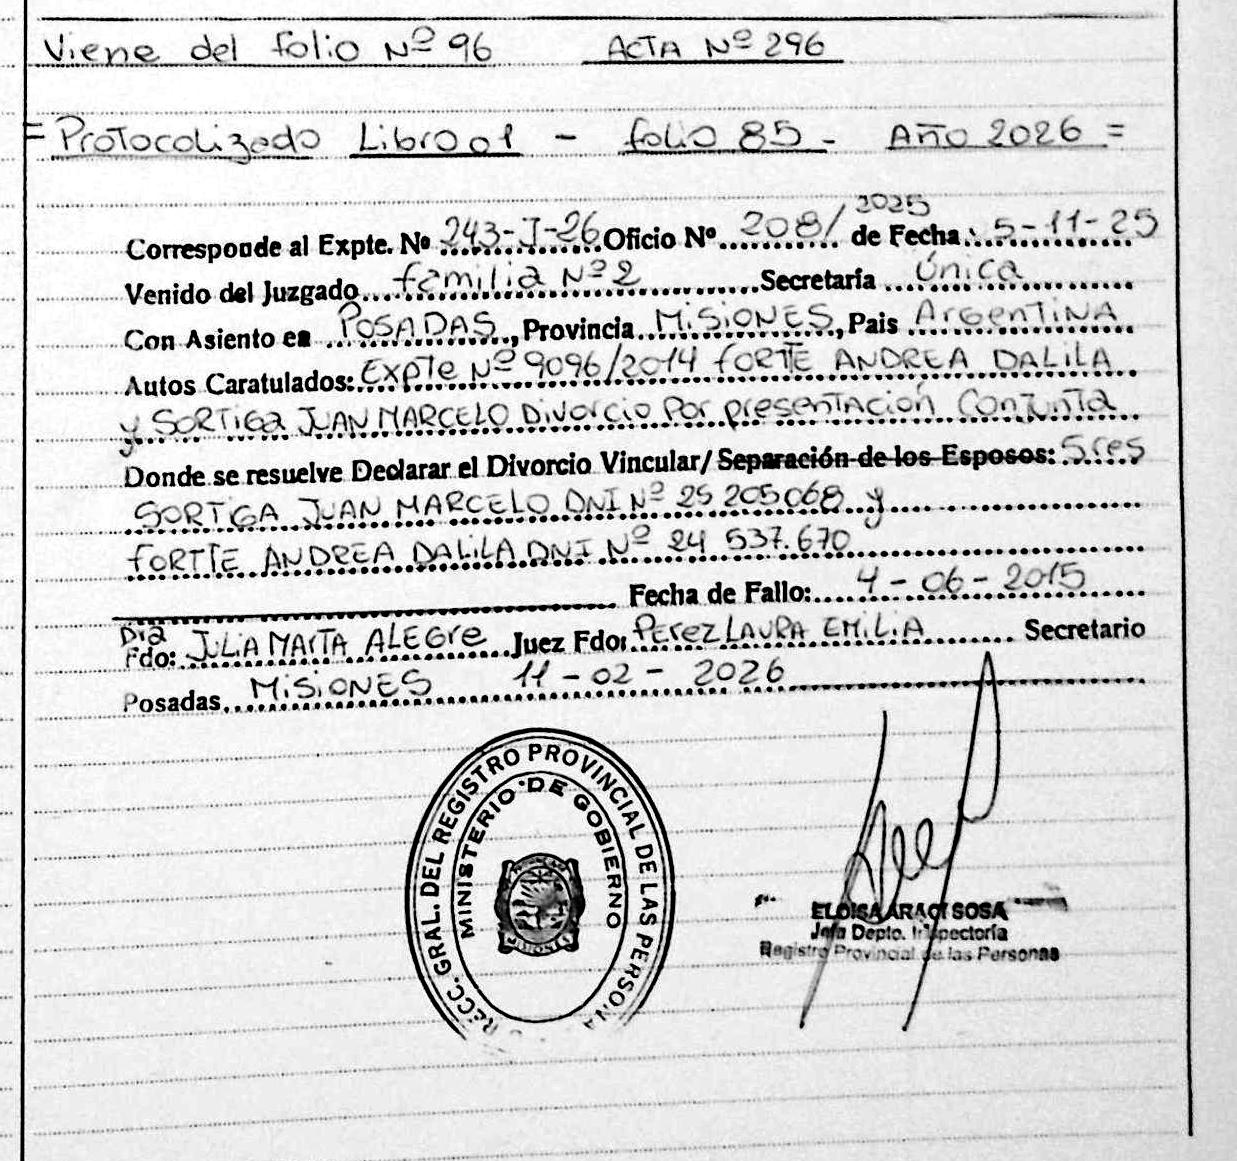 Viene del folio Nº 96 ACTA Nº 296
= Protocolizado Libro 01 - folio 85 - Año 2026 =
2025
Corresponde al Expte. Nº 243-J-26 Oficio Nº 208/ de Fecha: 5-11-25
Venido del Juzgado familia Nº 2 Secretaría Única
Con Asiento en POSADAS, Provincia MISIONES, Pais ARGENTINA
Autos Caratulados: Expte Nº 9096/2014 FORTE ANDREA DALILA
y SORTIGA JUAN MARCELO Divorcio Por presentación Conjunta
Donde se resuelve Declarar el Divorcio Vincular/ Separación de los Esposos: Sres
SORTIGA JUAN MARCELO DNI Nº 25 205068 y
FORTTE ANDREA DALILA DNI Nº 24 537.670
Fecha de Fallo: 4-06-2015
Dra
Fdo: JULIA MARTA ALEGRE Juez Fdo: PEREZ LAURA EMILIA Secretario
Posadas, MISIONES 11-02-2026
RECC. GRAL. DEL REGISTRO PROVINCIAL DE LAS PERSONA
MINISTERIO DE GOBIERNO
MISIONES
ELOISA ARACI SOSA
Jefa Depto. Inspectoría
Registro Provincial de las Personas